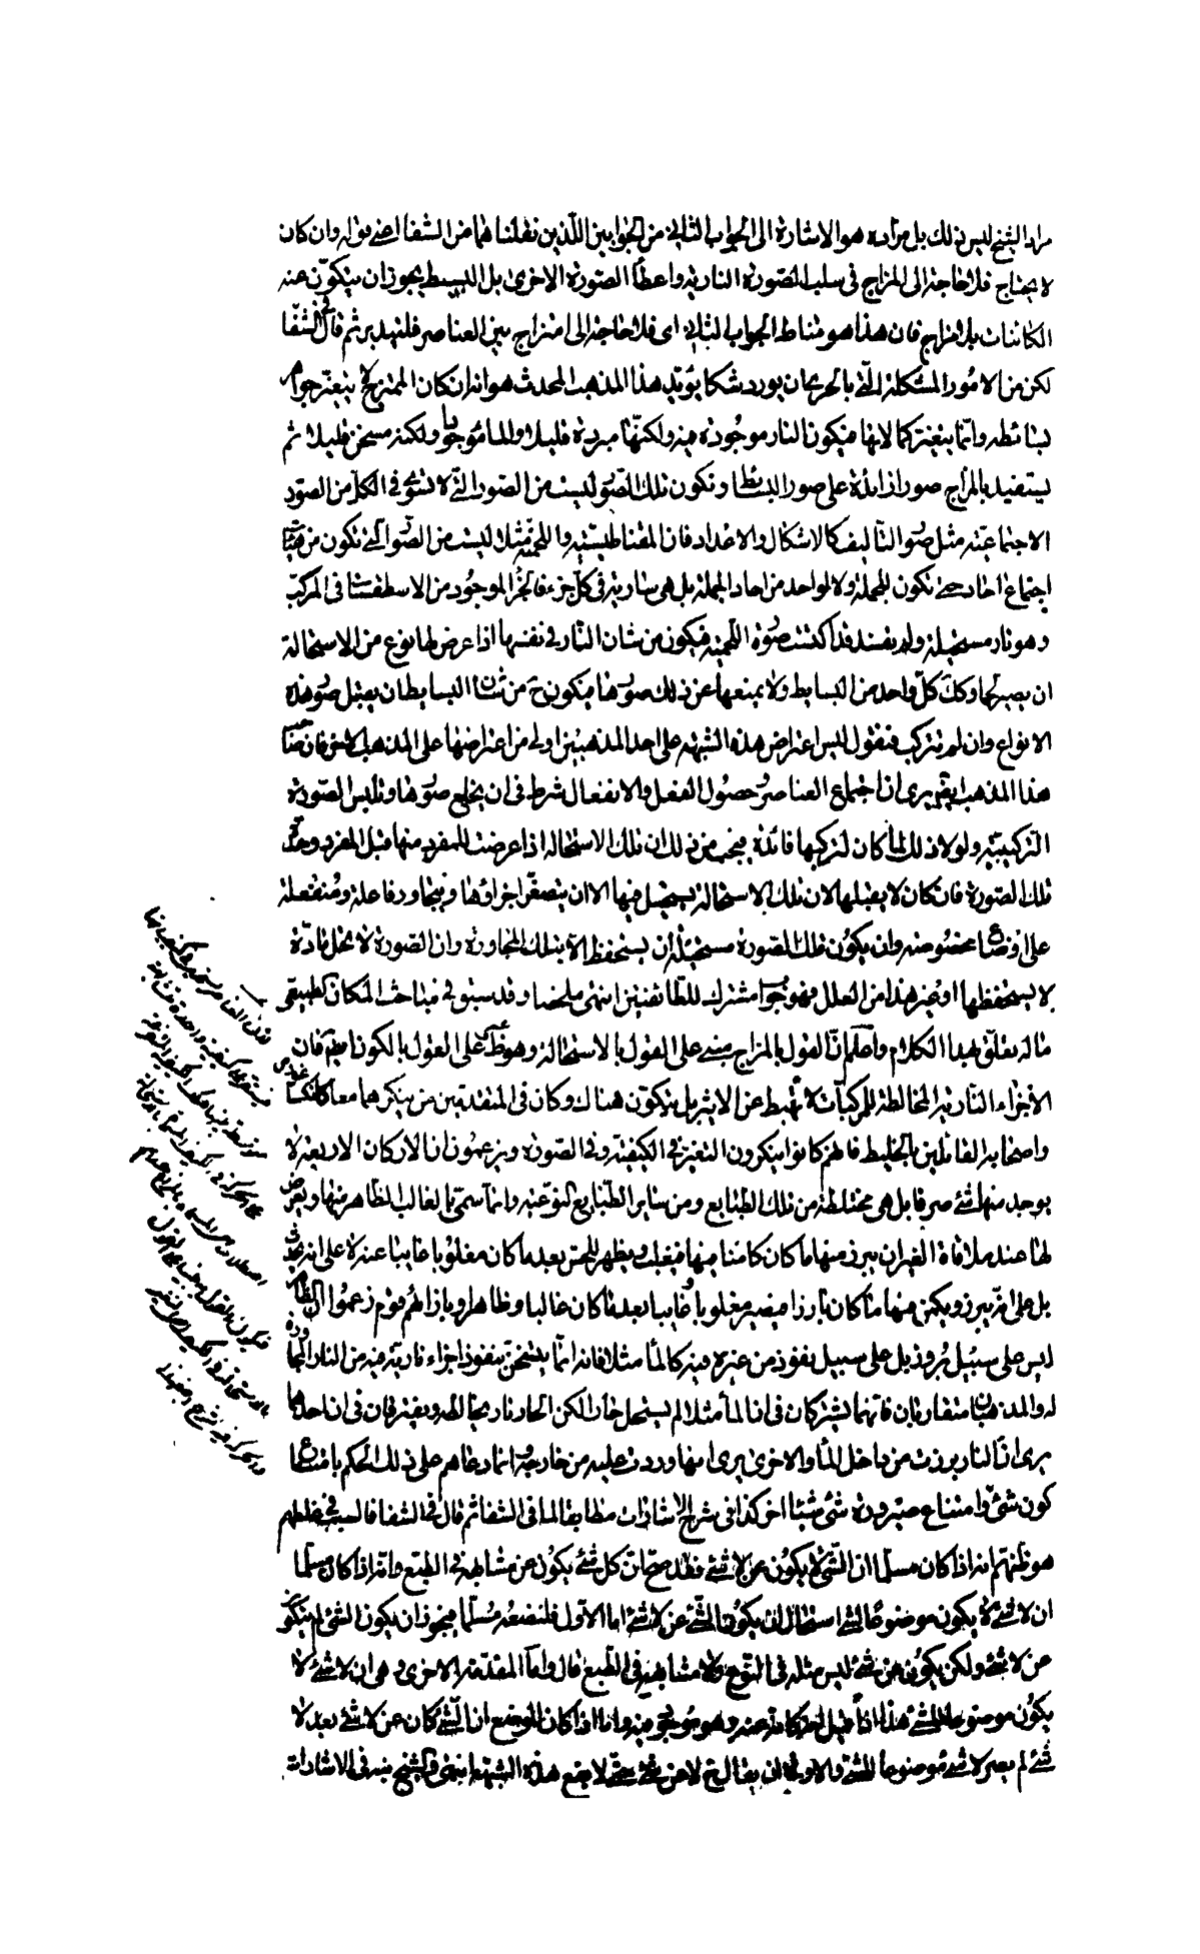 مراد الشيخ ليس ذلك بل مراده هو الاشارة الى الجواب الثانى من الجوابين اللذين نقلناهما من الشفا اعنى قوله وان كان
لا يحتاج فلا حاجة الى المزاج فى سلب الصورة النارية واعطا الصورة الاخرى بل البسيط يجوز ان يتكون عنه
الكائنات بلا مزاج فان هذا هو مناط الجواب الثانى اى فلا حاجة الى امتزاج بين العناصر فليتدبر ثم قال فى الشفا
لكن من الامور المشكلة التى بالحرى ان يورد شكا يؤيد هذا المذهب المحدث هو انه ان كان الممتزج لا يتغير جواهر
بسائطه وانما يتغير كمالاتها فيكون النار موجودة فيه ولكنها مبردة قليلا والماء موجودا ولكنه مسخن قليلا ثم
يستفيد بالمزاج صورا زائدة على صور البسائط وتكون تلك الصور ليست من الصور التى لا تسرى فى الكل من الصور
الاجتماعية مثل صور التاليف كالاشكال والاعداد فان المقناطيسية واللحمية مثلا ليست من الصور التى تكون من هيئات
اجتماع احاد حتى تكون للجملة ولا لواحد من احاد الجملة بل هى سارية فى كل جزء فالجزء الموجود من الاسطقسات فى المركب
وهو نار مستحيلة ولم يفسد قد اكتست صورة اللحمية فيكون من شان النار فى نفسها اذا عرض لها نوع من الاستحالة
ان يصير لحما وكك كل واحد من البسايط ولا يمنعها عن ذلك صورها فيكون ح من شان البسايط ان يقبل صور هذه
الانواع وان لم يتركب فنقول ليس اعتراض هذه الشبهة على احد المذهبين اولى من اعتراضها على المذهب الاخر فان صاحب
هذا المذهب ايضا يرى ان اجتماع العناصر وحصول الفعل والانفعال شرط فى ان يخلع صورها وتلبس الصورة
التركيبية ولولا ذلك لما كان لتركيبها فائدة فيجب من ذلك ان تلك الاستحالة اذا عرضت للمفرد منها قبل المفرد وحده
تلك الصورة فان كان لا يقبلها لان تلك الاستحالة يستحيل فيها الا ان يتصغر اجزاؤها ويتجاور فاعلة ومنفعلة
على اوضاع مخصوصة وان يكون تلك الصورة مستحيلة ان يستحفظ الا بتلك المجاورة وان الصورة لا يحل مادة
لا يستحفظها او غير هذا من العلل فهو جواب مشترك للطائفتين انتهى ملخصا وقد سبق فى مباحث المكان الطبيعى
ما له تعلق بهذا الكلام واعلم ان القول بالمزاج مبنى على القول بالاستحالة وهو ظ وعلى القول بالكون ايضا فان
الاجزاء النارية المخالطة للمركبات لا تهبط عن الاثير بل يتكون هناك وكان فى المتقدمين من ينكرهما معا كانكساغورس
واصحابه القائلين بالخليط فانهم كانوا ينكرون التغير فى الكيفية وفى الصورة ويزعمون ان الاركان الاربعة لا
يوجد منها شئ صرفا بل هى مختلطة من تلك الطبايع ومن ساير الطبايع النوعية وانما يسمى بالغالب الظاهر منها ويعرض
لها عند ملاقاة الغير ان يبرز منها ما كان كامنا فيها فيغلب ويظهر للحس بعد ما كان مغلوبا غايبا عنه لا على انه حدث
بل على انه برز ويكمن فيها ما كان بارزا فيصير مغلوبا وغايبا بعد ما كان غالبا وظاهرا وبازائهم قوم زعموا ان الظاهر
ليس على سبيل بروز بل على سبيل نفوذ من غيره فيه كالماء مثلا فانه انما يتسخن بنفوذ اجزاء نارية فيه من النار المجاورة
له والمذهبان متقاربان فانهما يشتركان فى ان الماء مثلا لم يستحل حارا لكن الحار نار يخالطه ويفترقان فى ان احدهما
يرى ان النار برزت من داخل الماء والاخرى يرى انها وردت عليه من خارجه وانما دعاهم على ذلك الحكم بامتناع
كون شئ وامتناع صيرورة شئ شيئا اخر كذا فى شرح الاشارات مطابقا لما فى الشفا ثم قال فى الشفا فالسبب فى غلطهم
هو ظنهم انه اذا كان مسلما ان الشئ لا يكون عن لا شئ فقد صح ان كل شئ يكون عن مشابهه فى الطبع وانه اذا كان مسلما
ان لا شئ لا يكون موضوعا لشئ استحال ان يكون الشئ عن لا شئ اما الاول فلنضعه مسلما فيجوز ان يكون الشئ لم يتكون
عن لا شئ ولكن يكون عن شئ ليس مثله فى النوع ولا مشابهه فى الطبع قال واما المقدمة الاخرى وهى ان لا شئ لا
يكون موضوعا للشئ هذا اذا قيل انه كان عنه وهو موجود فيه واما اذا كان الوضع ان الشئ كان عن لا شئ بعد لا
شئ لم يصر لا شئ موضوعا للشئ والاولى ان يقال ح لا عن شئ حتى لا يقع هذه الشبهة انتهى والشيخ نبه فى الاشارات